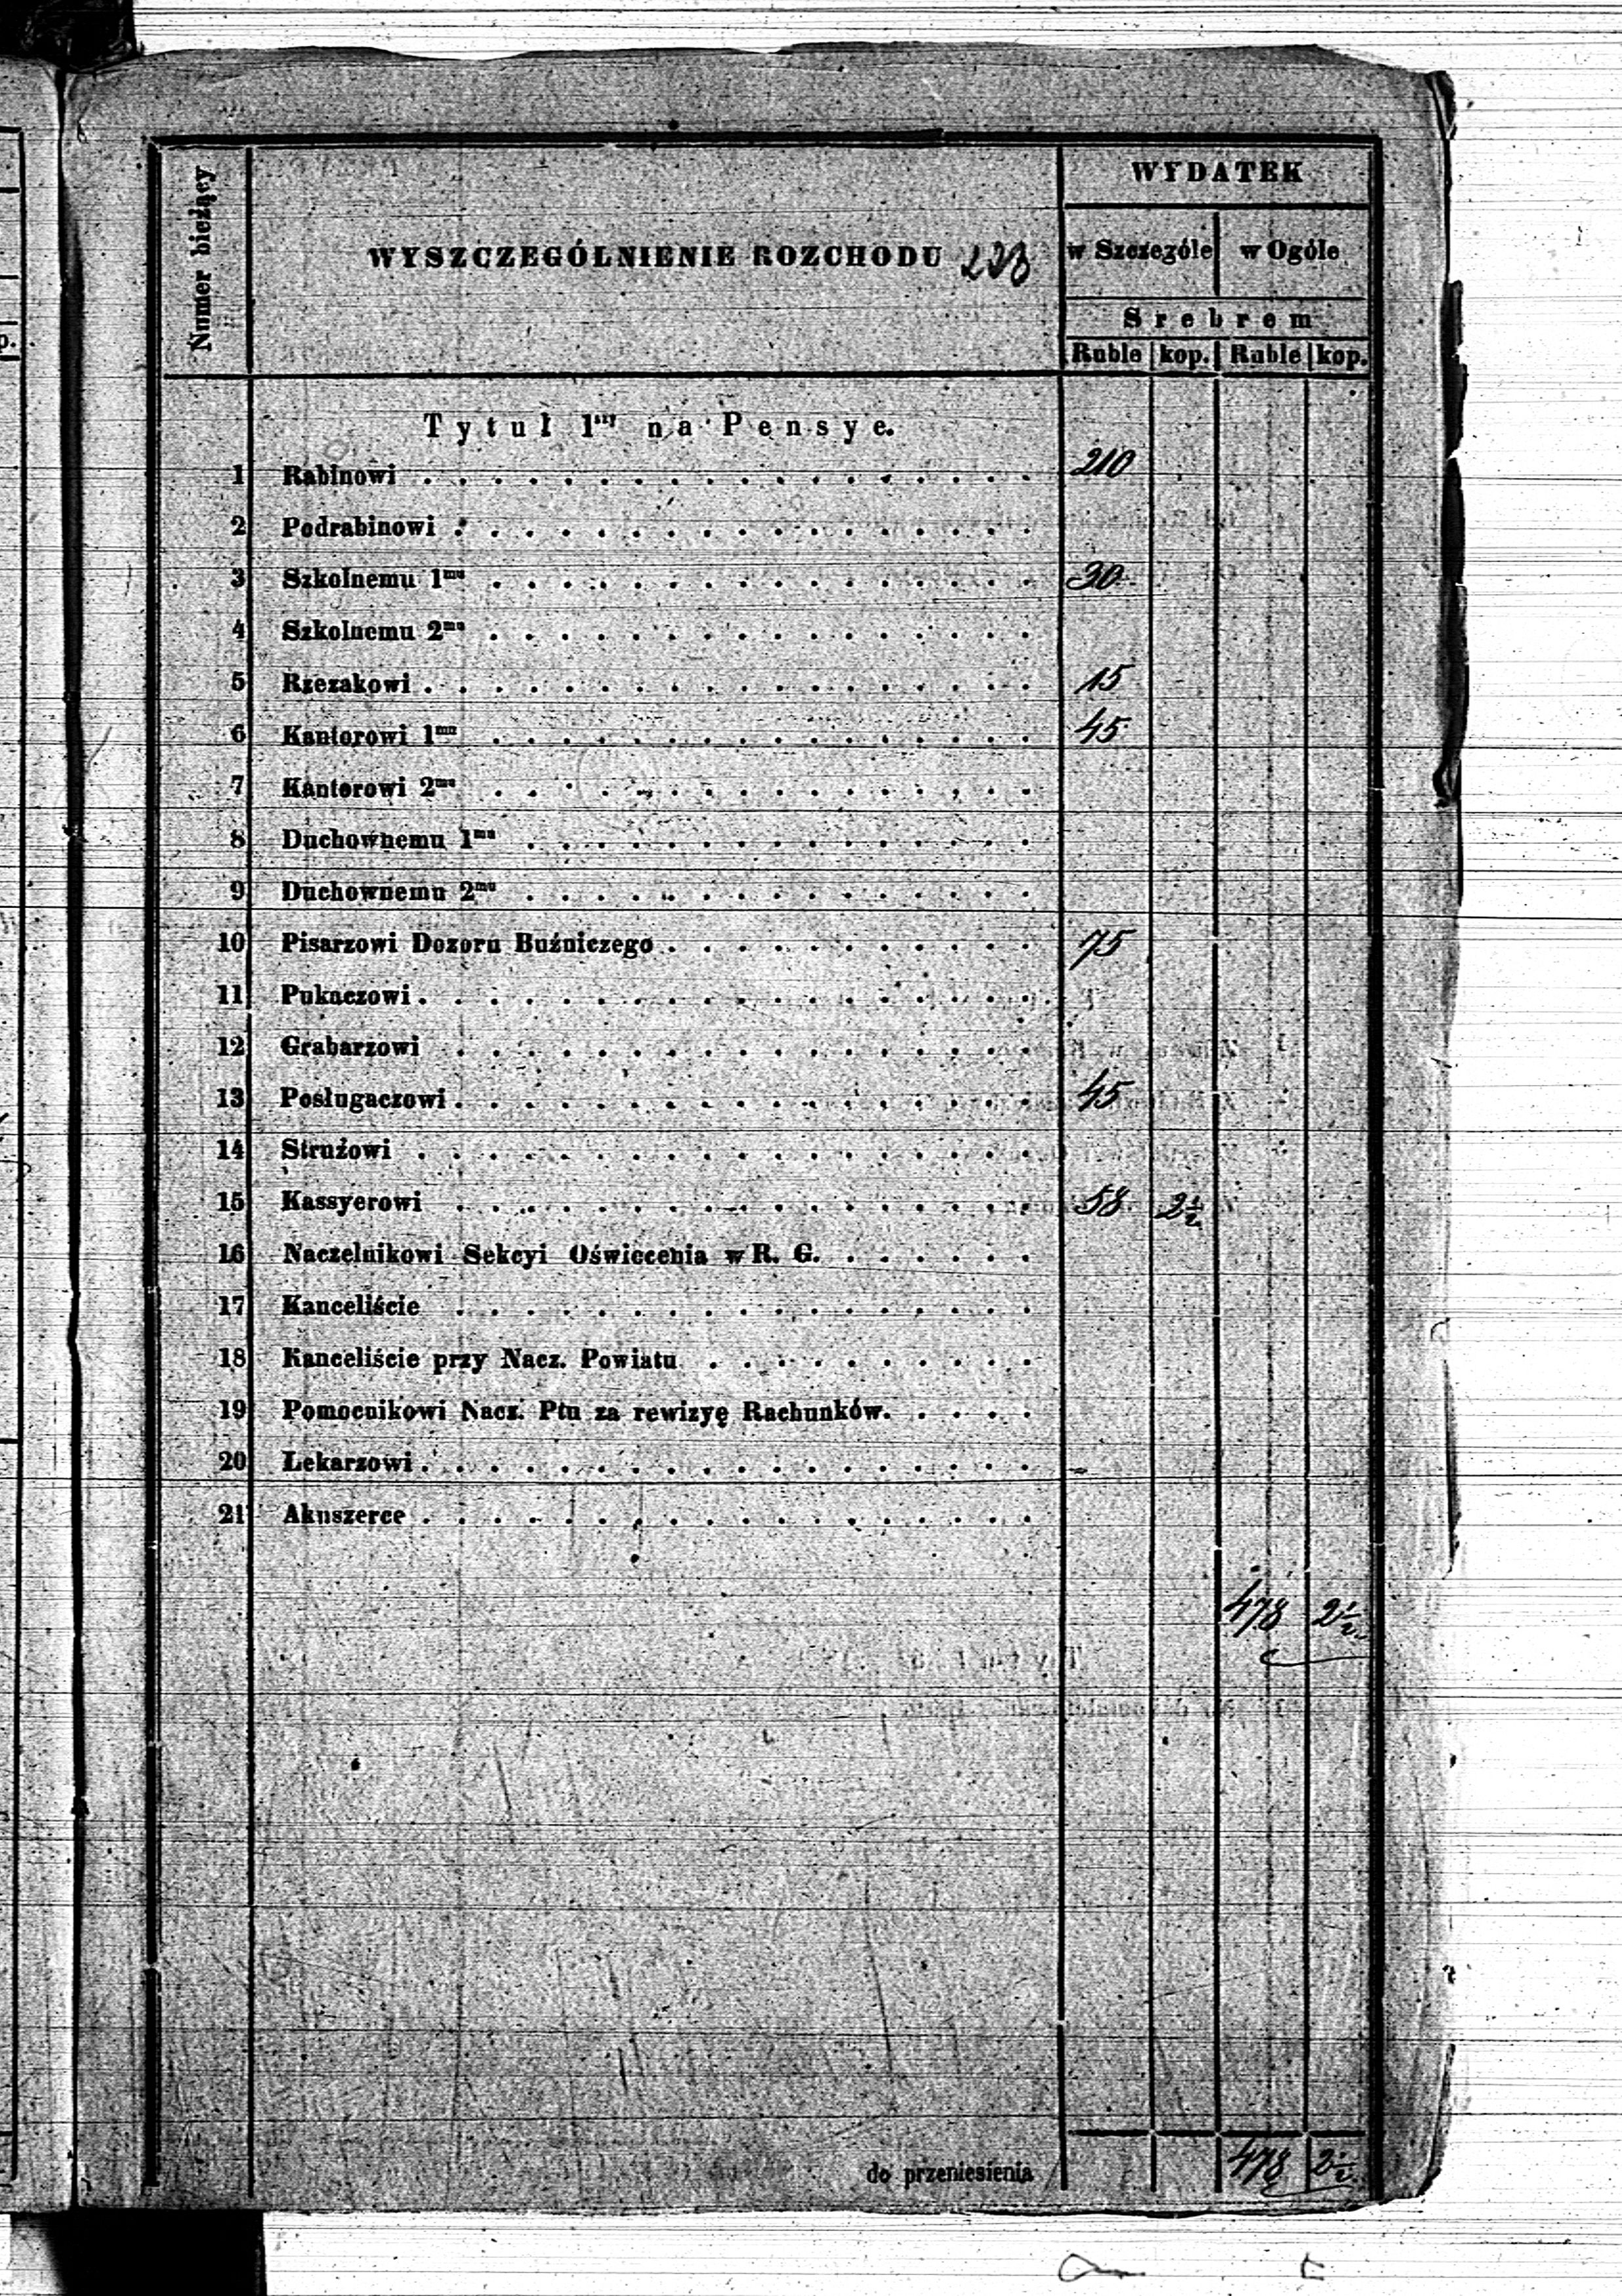 Numer bieżący
WYSZCZEGÓLNIENIE ROZCHODU 223
WYDATEK
w Szczególe w Ogóle
Srebrem
Ruble kop. Ruble kop.
Tytuł 1szy na Pensye.
1 Rabinowi 210
2 Podrabinowi
3 Szkolnemu 1mu 30
4 Szkolnemu 2mu
5 Rzezakowi 15
6 Kantorowi 1mu 45
7 Kantorowi 2mu
8 Duchownemu 1mu
9 Duchownemu 2mu
10 Pisarzowi Dozoru Buźniczego 75
11 Pukaczowi
12 Grabarzowi
13 Posługaczowi 45
14 Strużowi
15 Kassyerowi 58 2½
16 Naczelnikowi Sekcyi Oświecenia w R. G.
17 Kanceliście
18 Kanceliście przy Nacz. Powiatu
19 Pomocnikowi Nacz. Ptu za rewizyę Rachunków.
20 Lekarzowi
21 Akuszerce
478 2½
do przeniesienia 478 2½